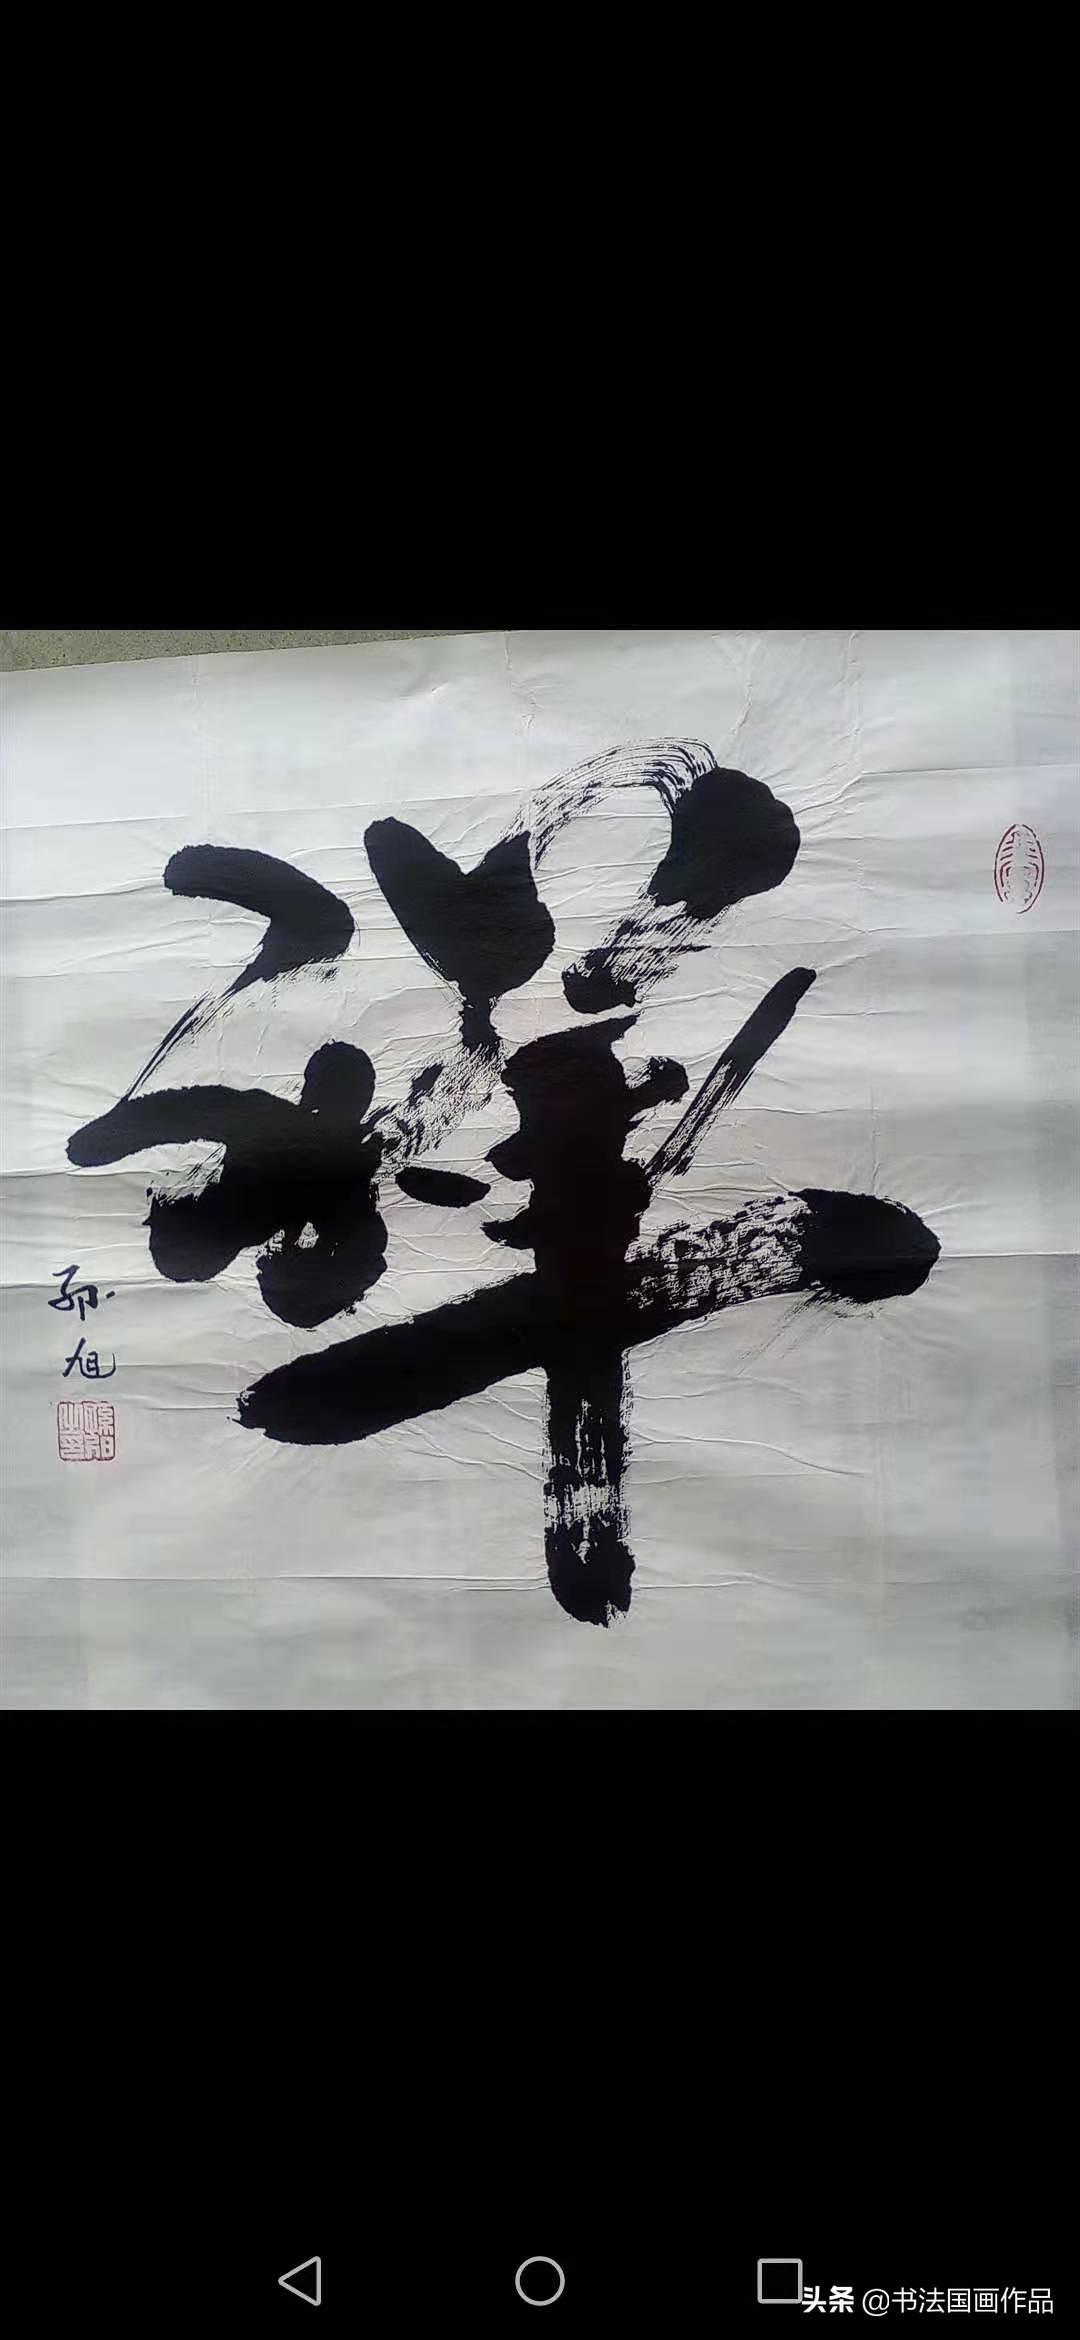 禅
孙旭
头条 @书法国画作品